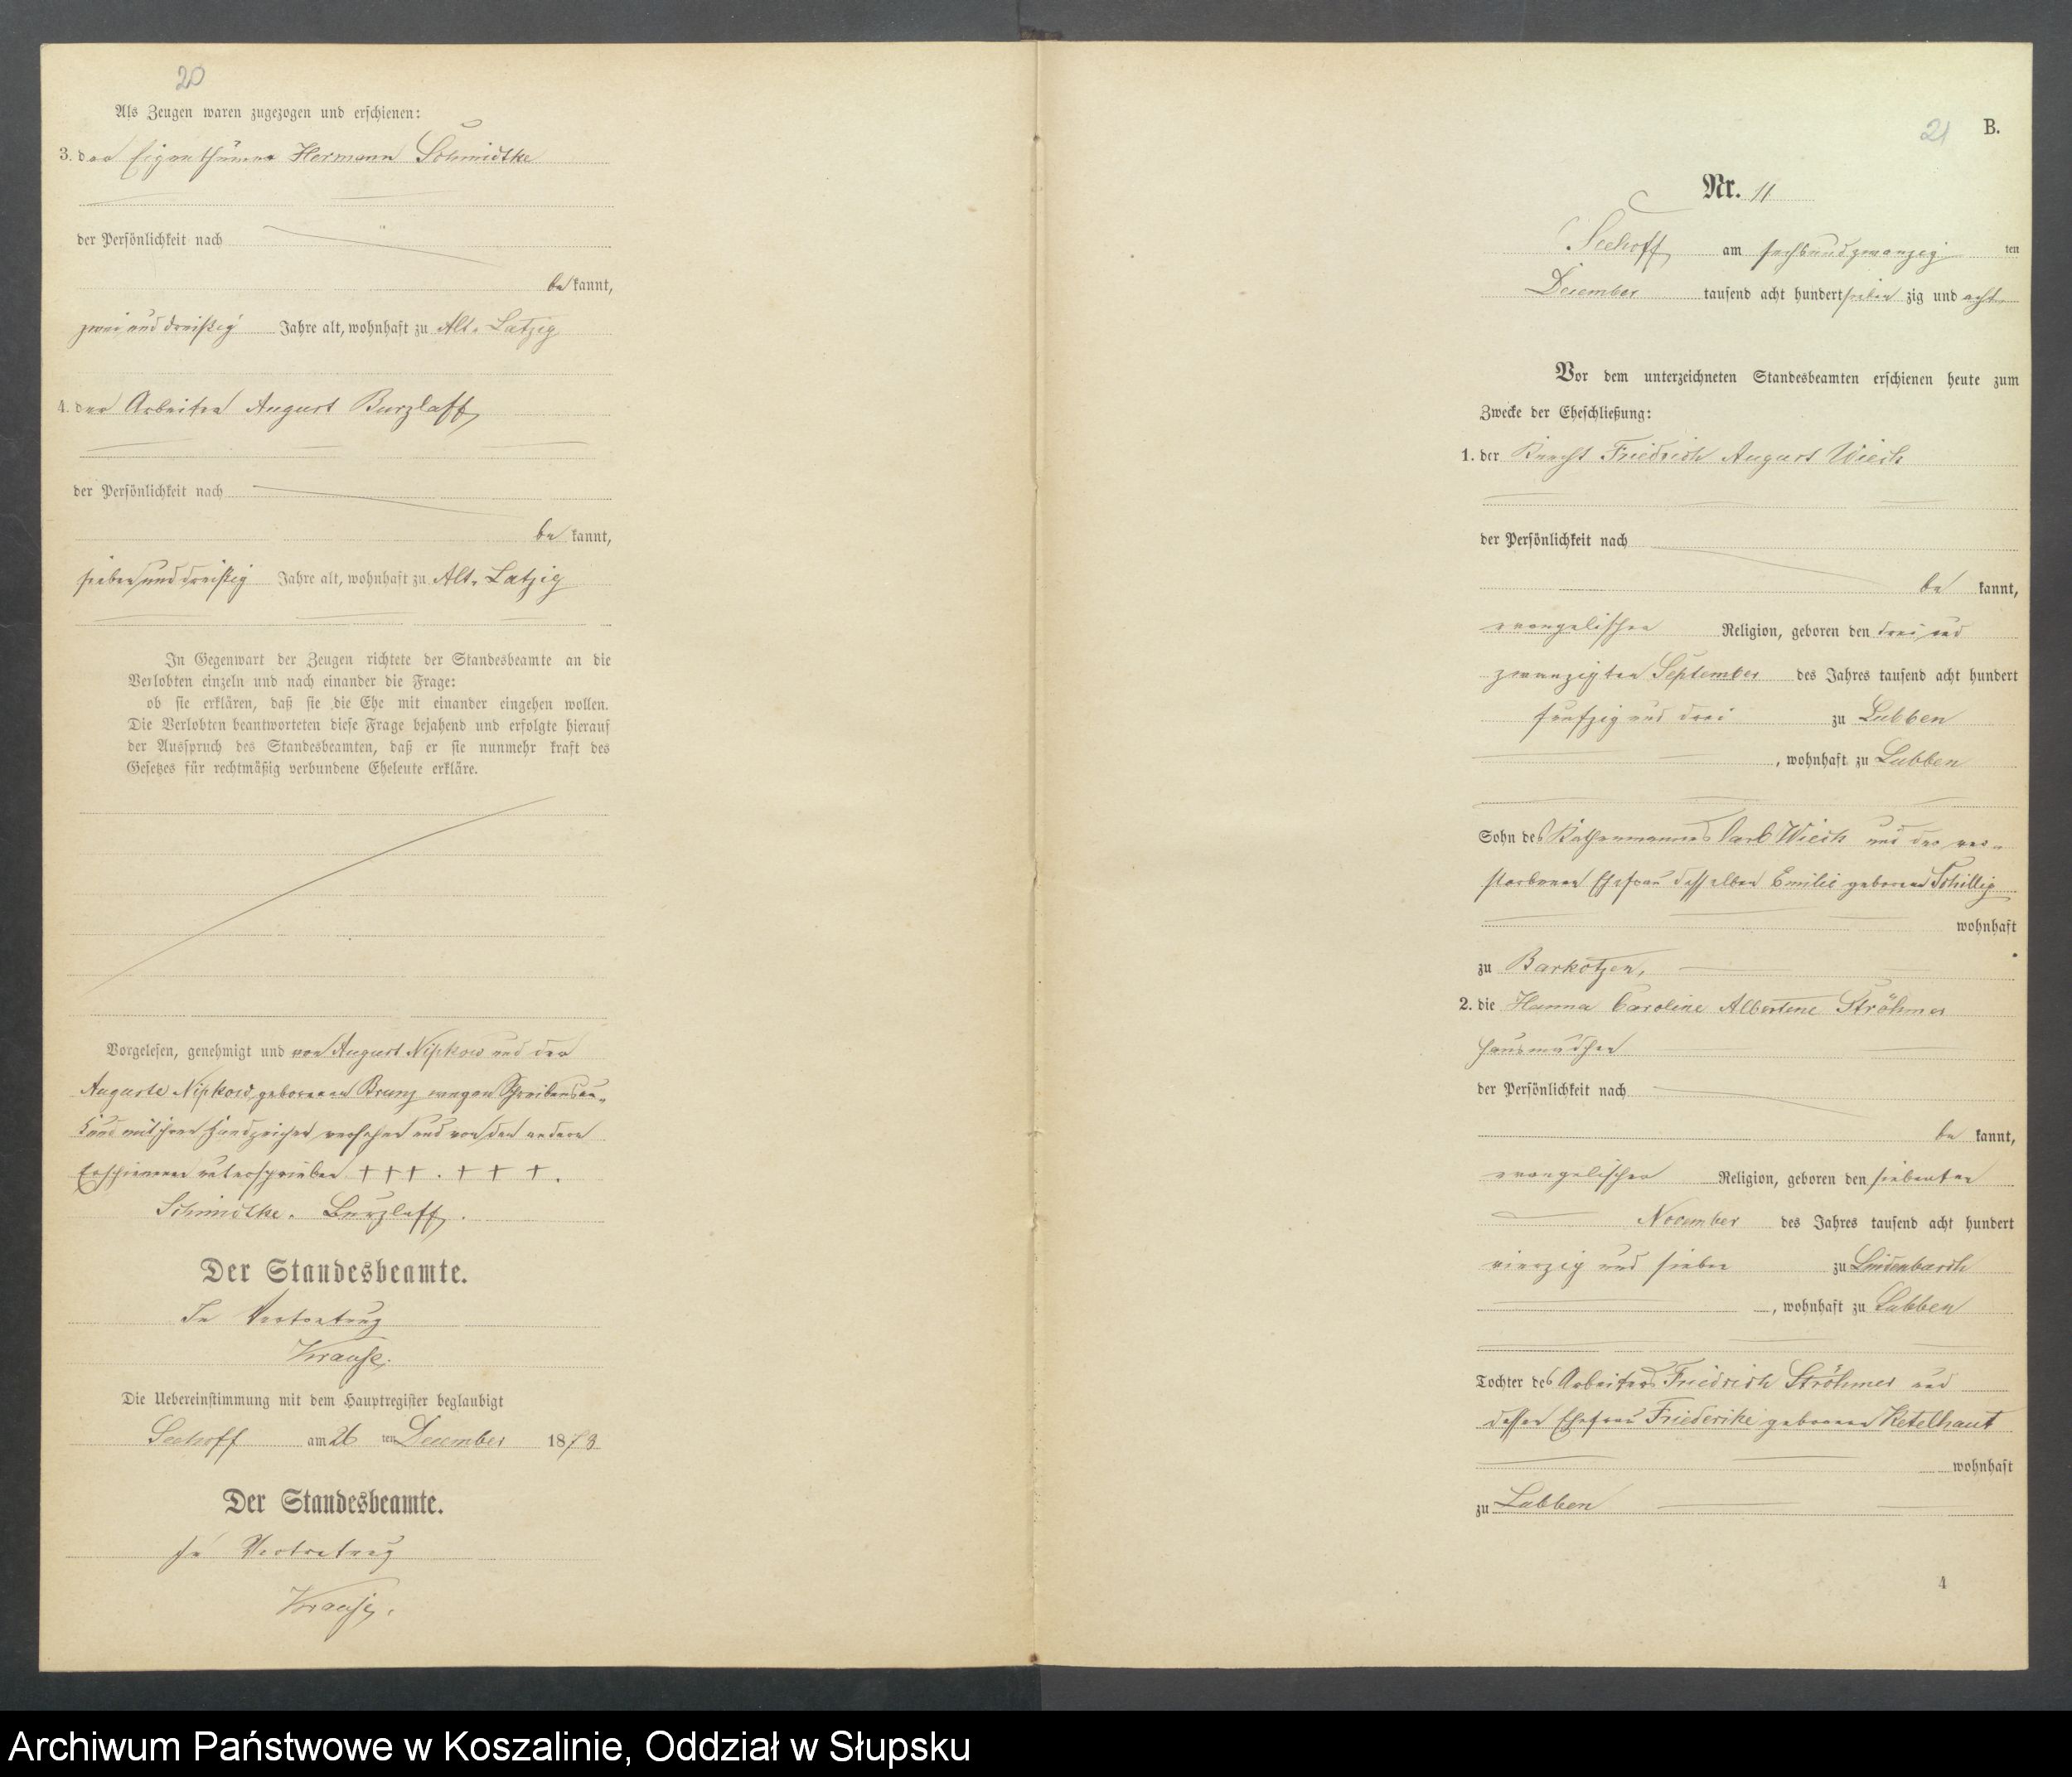 20
Als Zeugen waren zugezogen und erschienen:
3. der Eigenthümer Hermann Schmidtke
der Persönlichkeit nach
be kannt,
zwei und dreißig Jahre alt, wohnhaft zu Alt-Latzig
4. der Arbeiter August Burzlaff
der Persönlichkeit nach
be kannt,
sieben und dreißig Jahre alt, wohnhaft zu Alt-Latzig
In Gegenwart der Zeugen richtete der Standesbeamte an die
Verlobten einzeln und nach einander die Frage:
ob sie erklären, daß sie die Ehe mit einander eingehen wollen.
Die Verlobten beantworteten diese Frage bejahend und erfolgte hierauf
der Ausspruch des Standesbeamten, daß er sie nunmehr kraft des
Gesetzes für rechtmäßig verbundene Eheleute erkläre.
Vorgelesen, genehmigt und von August Nipkow und der
Auguste Nipkow geborenen Brunz wegen Schreibensun-
kund mit ihren Handzeichen versehen und von den andern
Erschienenen unterschrieben +++. + + +.
Schmidtke. Burzlaff.
Der Standesbeamte.
In Vertretung
Krause.
Die Uebereinstimmung mit dem Hauptregister beglaubigt
Seehoff am 26 ten December 1878
Der Standesbeamte.
In Vertretung
Krause.
21 B.
Nr. 11
Seehoff am sechsundzwanzig ten
December tausend acht hundert sieben zig und acht
Vor dem unterzeichneten Standesbeamten erschienen heute zum
Zwecke der Eheschließung:
1. der Knecht Friedrich August Wiech
der Persönlichkeit nach
be kannt,
evangelischer Religion, geboren den drei und
zwanzigten September des Jahres tausend acht hundert
fünfzig und drei zu Lubben
, wohnhaft zu Lubben
Sohn des Käthnermannes Carl Wiech und der ver-
storbenen Ehefrau desselben Emilie geborene Schillig
wohnhaft
zu Barkotzen,
2. die Hanna Caroline Albertene Ströhmer
Hausmädchen
der Persönlichkeit nach
be kannt,
evangelischer Religion, geboren den siebenten
November des Jahres tausend acht hundert
vierzig und sieben zu Lindenbusch
, wohnhaft zu Lubben
Tochter des Arbeiters Friedrich Ströhmer und
dessen Ehefrau Friederike geborenen Ketelhaut
wohnhaft
zu Lubben
4
Archiwum Państwowe w Koszalinie, Oddział w Słupsku